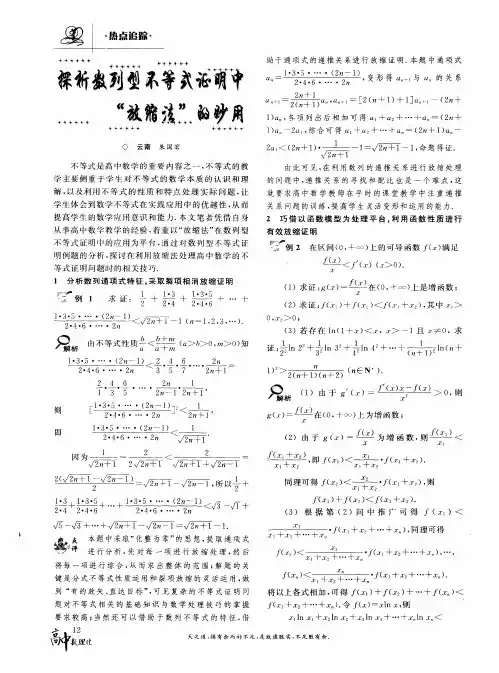 ·热点追踪·
探析数列型不等式证明中
“放缩法”的妙用
○ 云南 朱国宏
不等式是高中数学的重要内容之一,不等式的教
学主要侧重于学生对不等式的数学本质的认识和理
解,以及利用不等式的性质和特点处理实际问题,让
学生体会到数学不等式在实践应用中的优越性,从而
提高学生的数学应用意识和能力.本文笔者凭借自身
从事高中数学教学的经验,着重以“放缩法”在数列型
不等式证明中的应用为平台,通过对数列型不等式证
明例题的分析,探讨在利用放缩法处理高中数学的不
等式证明问题时的相关技巧.
1 分析数列通项特点,采取裂项相消放缩证明
例 1 求证: 1/2 + 1·3/2·4 + 1·3·5/2·4·6 + ⋯ +
1·3·5·⋯·(2n−1)/2·4·6·⋯·2n < √(2n+1) −1 (n=1,2,3,⋯).
解析 由不等式性质 b/a < (b+m)/(a+m) (a>b>0,m>0)知
1·3·5·⋯·(2n−1)/2·4·6·⋯·2n < 2/3·4/5·6/7·⋯·2n/(2n+1) =
2/1·4/3·6/5·⋯·2n/(2n−1)·1/(2n+1),
则 [1·3·5·⋯·(2n−1)/2·4·6·⋯·2n]² < 1/(2n+1),
即 1·3·5·⋯·(2n−1)/2·4·6·⋯·2n < 1/√(2n+1).
因为 1/√(2n+1) = 2/2√(2n+1) < 2/(√(2n+1)+√(2n−1)) =
2(√(2n+1)−√(2n−1))/2 = √(2n+1)−√(2n−1),所以 1/2 +
1·3/2·4 + 1·3·5/2·4·6 + ⋯ + 1·3·5·⋯·(2n−1)/2·4·6·⋯·2n < √3−√1+
√5−√3+⋯+√(2n+1)−√(2n−1)=√(2n+1)−1.
点评 本题中采取“化整为零”的思想,提取通项式
进行分析,先对每一项进行放缩处理,然后
将每一项进行综合,从而求出整体的范围;解题的关
键是分式不等式性质运用和裂项放缩的灵活运用,做
到“有的放矢、直达目标”,可见复杂的不等式证明问
题对不等式相关的基础知识与数学处理技巧的掌握
要求较高;当然还可以借助于数列不等式的特征,借
助于通项式的递推关系进行放缩证明.本题中通项式
aₙ=1·3·5·⋯·(2n−1)/2·4·6·⋯·2n,变形得 aₙ₊₁与 aₙ 的关系
aₙ₊₁=(2n+1)/2(n+1) aₙ,aₙ₊₁=[2(n+1)+1]aₙ₊₁−(2n+
1)aₙ,各项列出后相加可得 a₁+a₂+⋯+aₙ=(2n+
1)aₙ−2a₁,综合可得 a₁+a₂+⋯+aₙ=(2n+1)aₙ−
2a₁<(2n+1)·1/√(2n+1)−1=√(2n+1)−1,命题得证.
由此可见,在利用数列的通项关系进行放缩处理
的问题中,递推关系的寻找和配比也是一个难点,这
就要求高中数学教师在平时的课堂教学中注重递推
关系问题的训练,提高学生灵活变形和运用的能力.
2 巧借以函数模型为处理平台,利用函数性质进行
有效放缩证明
例 2 在区间(0,+∞)上的可导函数 f(x)满足
f(x)/x < f′(x) (x>0).
(1) 求证:g(x)=f(x)/x 在(0,+∞)上是增函数;
(2) 求证:f(x₁)+f(x₂)<f(x₁+x₂),其中 x₁>
0,x₂>0;
(3) 若存在 ln(1+x)<x, x>−1 且 x≠0, 求
证: 1/2² ln 2² + 1/3² ln 3² + 1/4² ln 4² + ⋯ + 1/(n+1)² ln(n+
1)² > n/2(n+1)(n+2) (n∈N*).
解析 (1) 由于 g′(x) = (f′(x)x−f(x))/x² > 0, 则
g(x)=f(x)/x 在(0,+∞)上为增函数;
(2) 由于 g(x)=f(x)/x 为增函数,则 f(x₁)/x₁ <
f(x₁+x₂)/(x₁+x₂),即 f(x₁)< x₁/(x₁+x₂)·f(x₁+x₂).
同理可得 f(x₂)< x₂/(x₁+x₂)·f(x₁+x₂),则
f(x₁)+f(x₂)<f(x₁+x₂).
(3) 根据第(2)问中推广可得 f(x₁)<
x₁/(x₁+x₂+⋯+xₙ)·f(x₁+x₂+⋯+xₙ),同理可得
f(x₂)< x₂/(x₁+x₂+⋯+xₙ)·f(x₁+x₂+⋯+xₙ),⋯,
f(xₙ)< xₙ/(x₁+x₂+⋯+xₙ)·f(x₁+x₂+⋯+xₙ).
将以上各式相加,可得 f(x₁)+f(x₂)+⋯+f(xₙ)<
f(x₁+x₂+⋯+xₙ),令 f(x)=xln x,则
x₁ln x₁+x₂ln x₂+x₃ln x₃+⋯+xₙln xₙ<
12
高中数理化
天之道,损有余而补不足,是故虚胜实,不足胜有余.